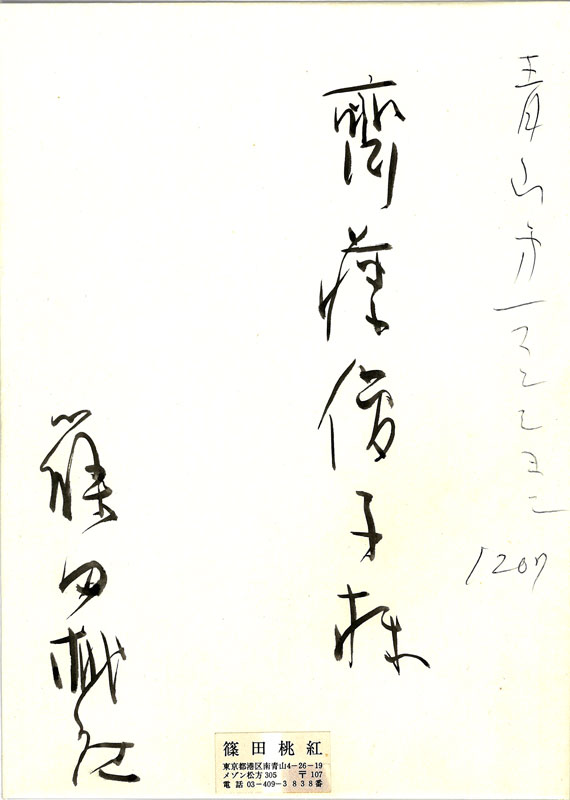 青山第一マンシヨン
1207
齊藤信子様
篠田桃紅
篠田桃紅
東京都港区南青山4-26-19
メゾン松方305 〒107
電話 03-409-3838番